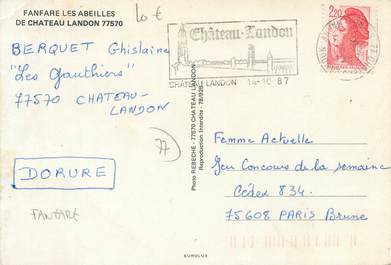 FANFARE LES ABEILLES
DE CHATEAU LANDON 77570
10 €
BERQUET Ghislaine
"Les Gauthiers"
77570 CHATEAU-
LANDON
DORURE
FANFARE
77
Photo REBECHE - 77570 CHATEAU LANDON
Reproduction Interdite - 78/925
Château-Landon
CHATEAU LANDON 14-10 87
2,20
Femme Actuelle
Jeu Concours de la semaine
Cédex 834.
75608 PARIS Brune
EUROLUX